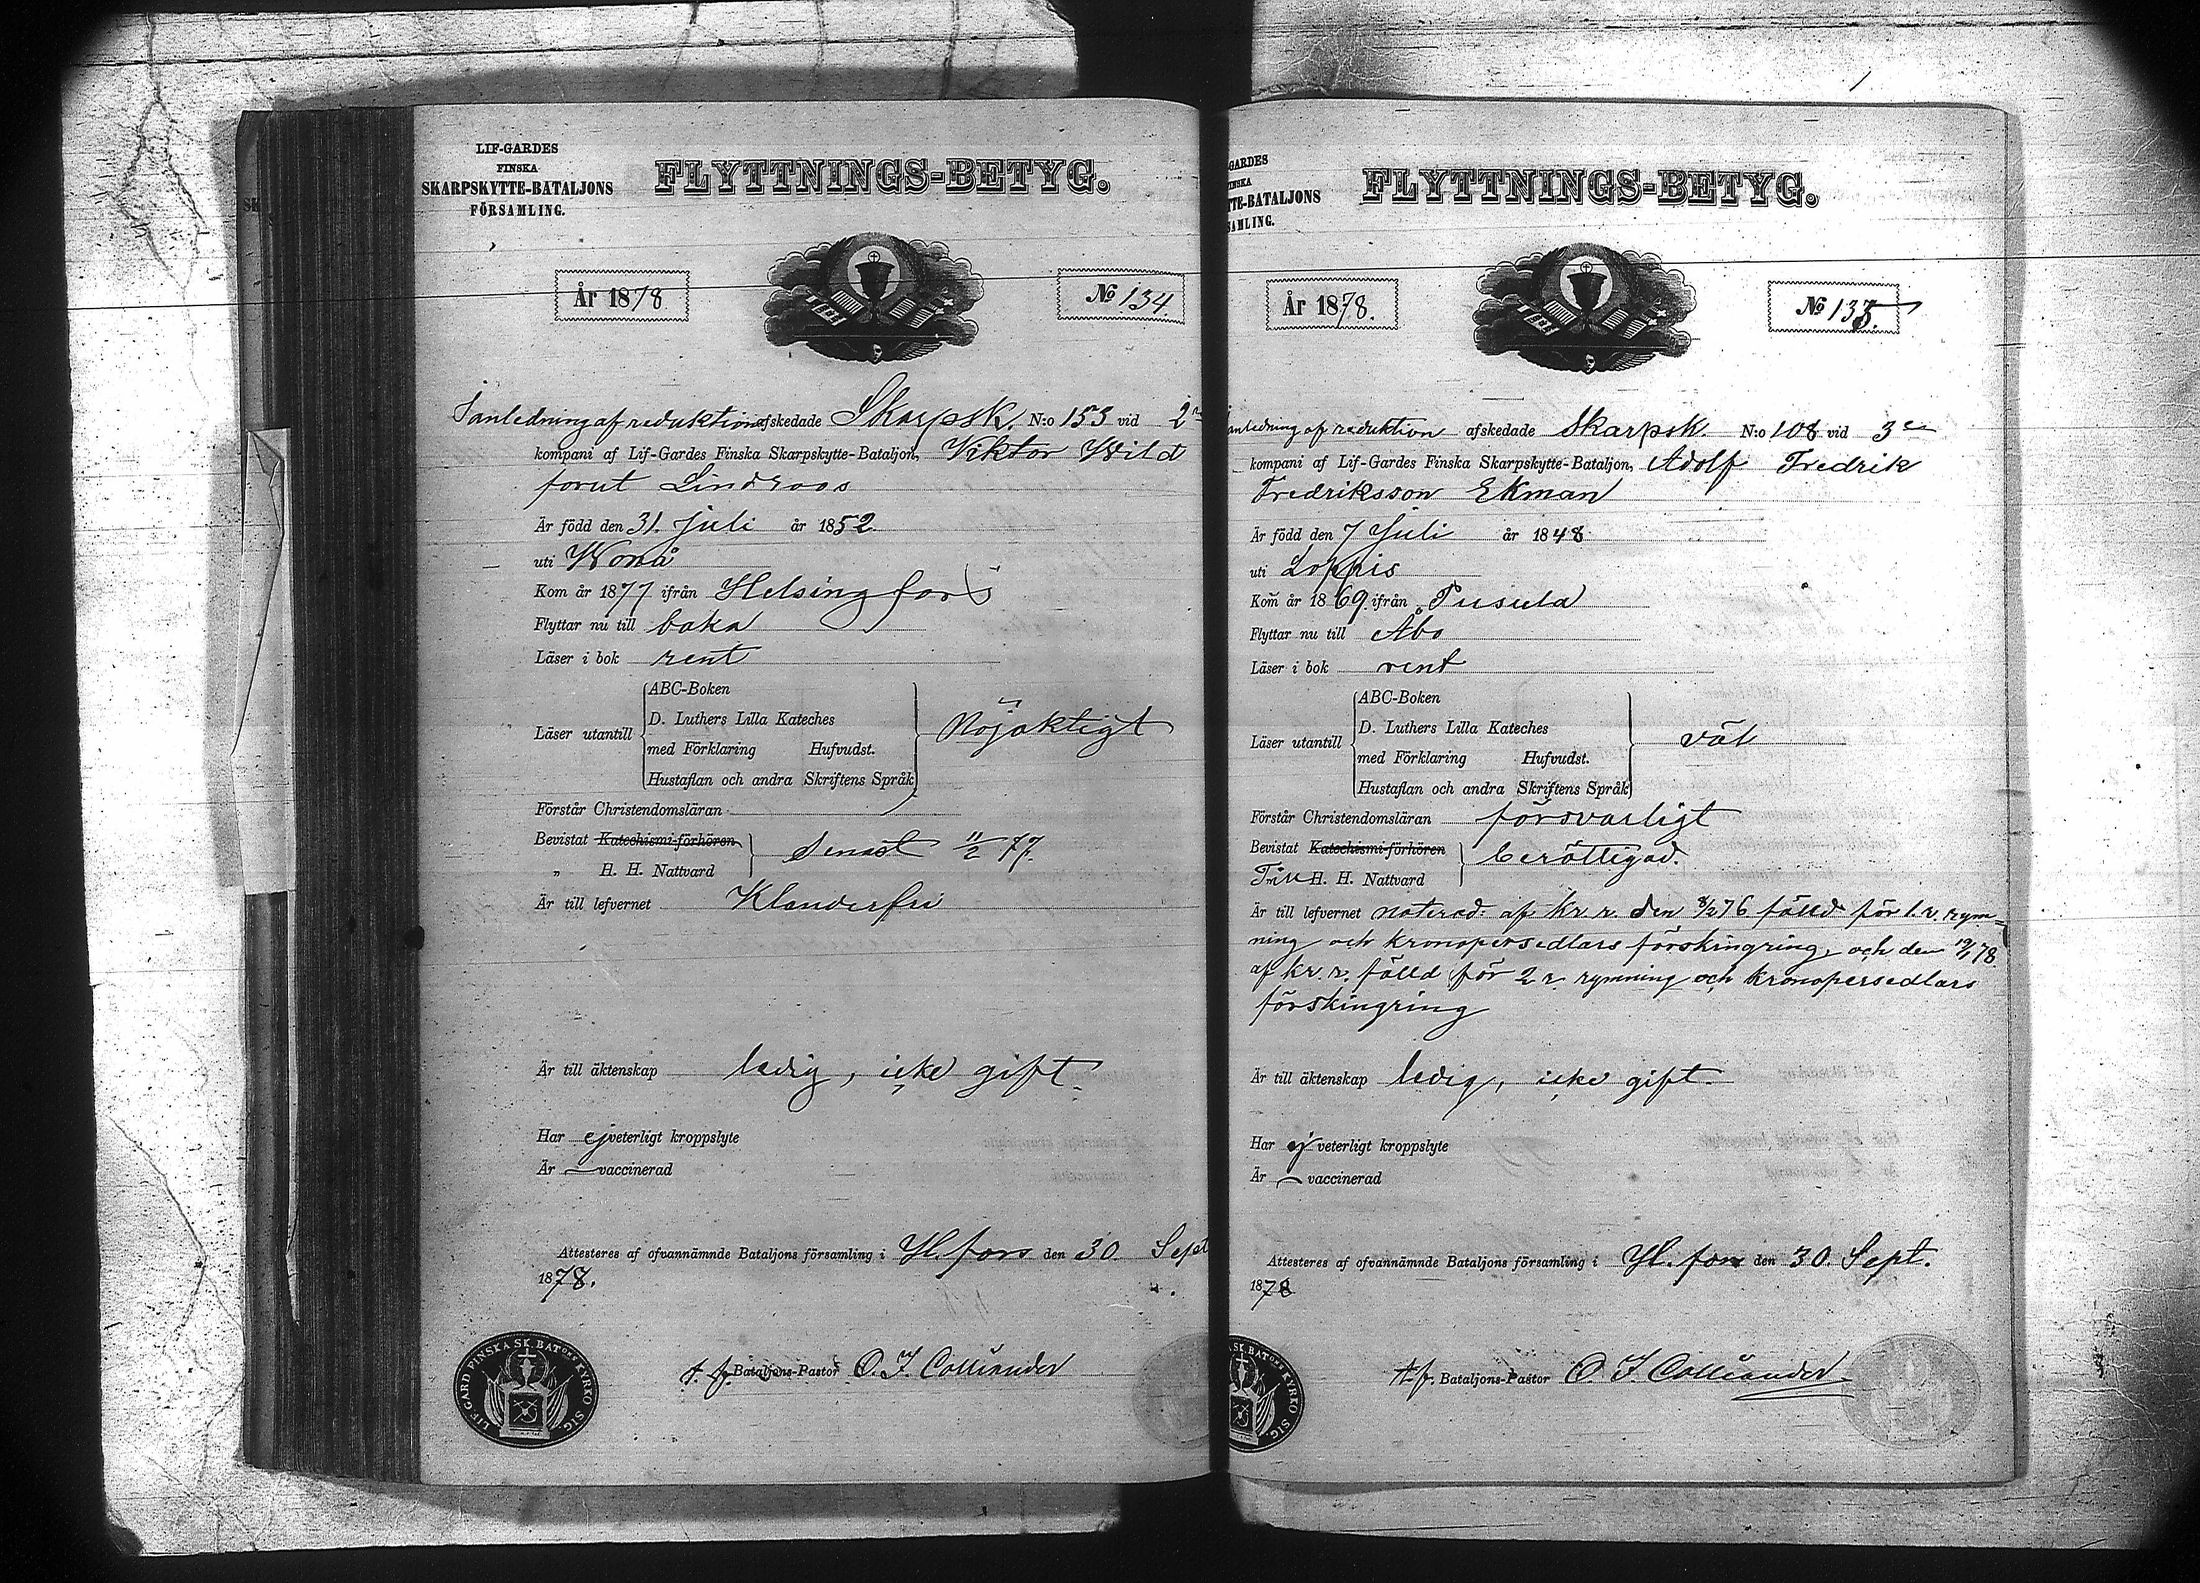 LIF-GARDES
FINSKA
SKARPSKYTTE-BATALJONS
FÖRSAMLING.
FLYTTNINGS-BETYG.
År 1878
№ 134.
I anledning af reduktion afskedade Skarpsk. N:o 153 vid 2
kompani af Lif-Gardes Finska Skarpskytte-Bataljon, Viktor Wild
förut Lindroos
Är född den 31. Juli år 1852
uti
Kom år 1877 ifrån Helsingfors
Flyttar nu till baka
Läser i bok rent
ABC-Boken
D. Luthers Lilla Kateches
Läser utantill
med Förklaring Hufvudst.
Hustaflan och andra Skriftens Språk
Nöjaktigt
Förstår Christendomsläran
Bevistat Katechismi-förhören
„ H. H. Nattvard
senast 11/2 77.
Är till lefvernet Klanderfri
Är till äktenskap ledig, icke gift.
Har ej veterligt kroppslyte
Är vaccinerad
Attesteres af ofvannämnde Bataljons församling i H.fors den 30 Sept
1878.
LIF GARD FINSKA SK. BATONS KYRKO SIG.
t. f. Bataljons-Pastor O. I. Colliander
GARDES
INSKA
TTE-BATALJONS
SAMLING.
FLYTTNINGS-BETYG.
År 1878.
№ 135.
anledning af reduktion afskedade Skarpsk. N:o 108 vid 3
kompani af Lif-Gardes Finska Skarpskytte-Bataljon, Adolf Fredrik
Fredriksson Ekman
Är född den 7 Juli år 1848
uti Loppis
Kom år 1869 ifrån Pusula
Flyttar nu till Åbo
Läser i bok rent
ABC-Boken
D. Luthers Lilla Kateches
Läser utantill
med Förklaring Hufvudst.
Hustaflan och andra Skriftens Språk
väl
Förstår Christendomsläran försvarligt
Bevistat Katechismi-förhören
Till H. H. Nattvard
berättigad.
Är till lefvernet noterad: af Kr. r. den 8/2 76 fälld för 1. r. rym=
ning och kronopersedlars förskingring, och den 19/1 78
af kr. r. fälld för 2 r. rymning och kronopersedlars
förskingring
Är till äktenskap ledig, icke gift.
Har ej veterligt kroppslyte
Är vaccinerad
Attesteres af ofvannämnde Bataljons församling i H.fors den 30. Sept.
1878
SK. BATONS KYRKO SIG.
t. f. Bataljons-Pastor O. I. Colliander